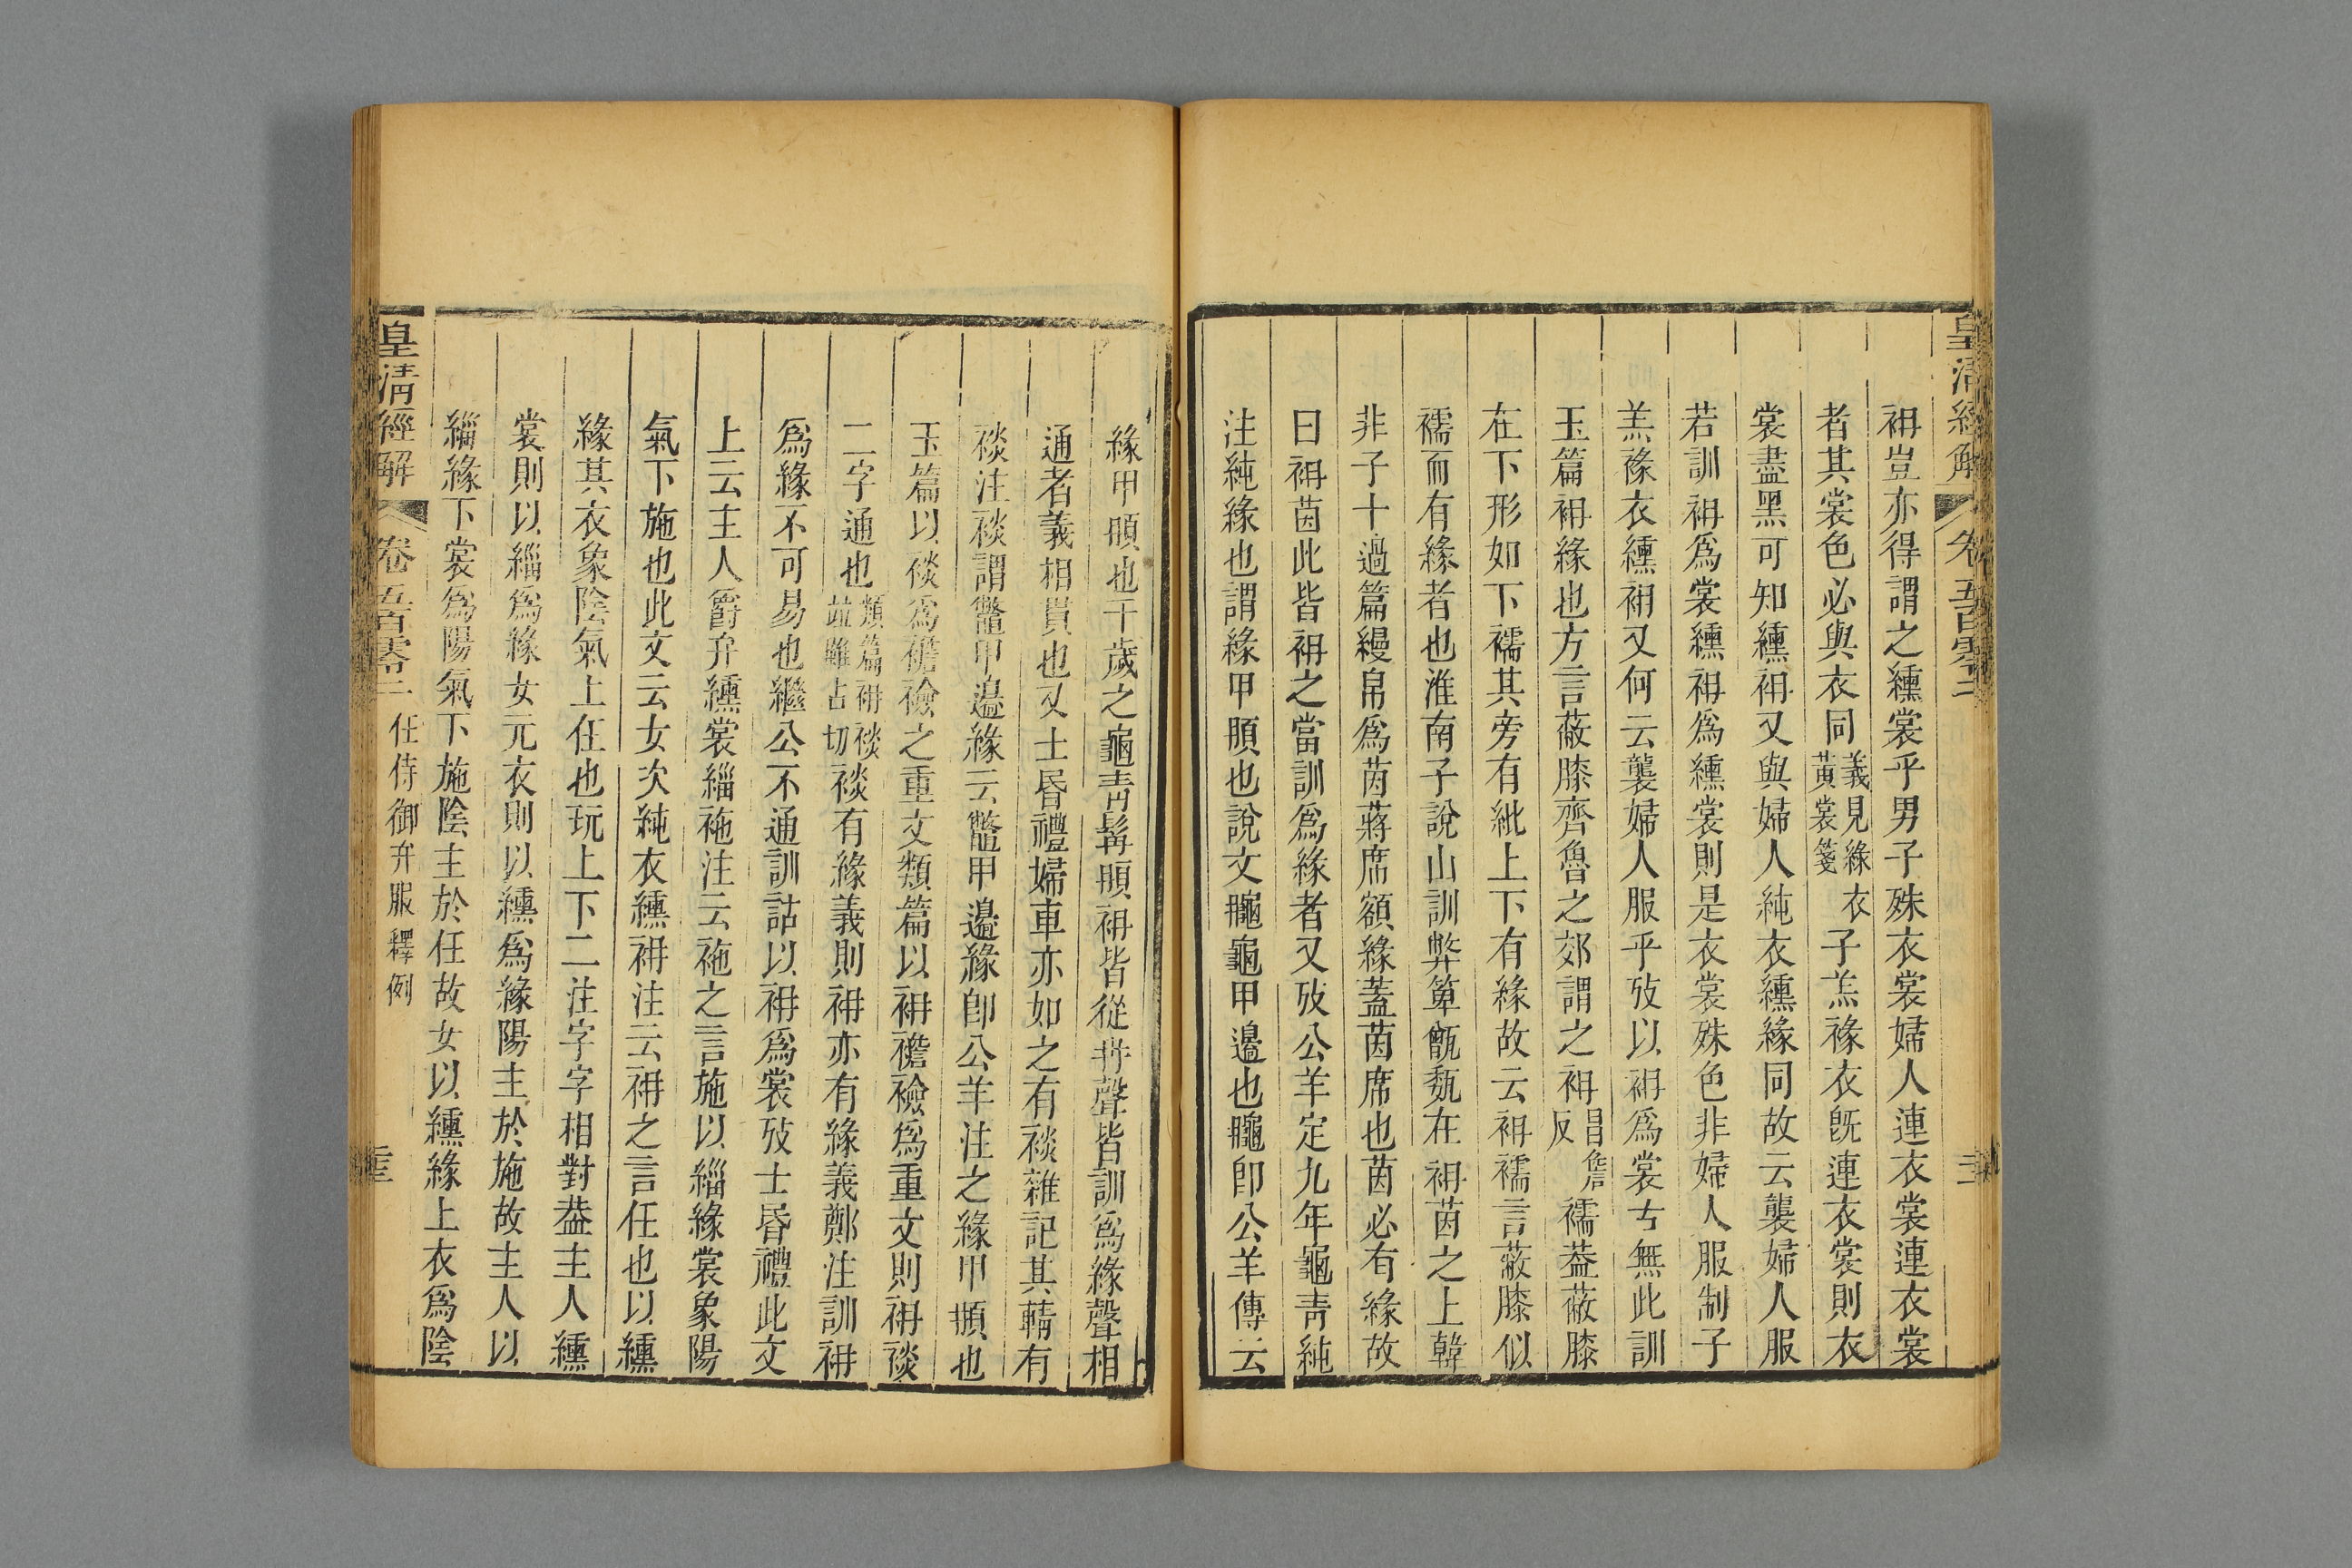 皇清經解 卷五百零二
袡豈亦得謂之纁裳乎男子殊衣裳婦人連衣裳連衣裳
者其裳色必與衣同義見緣衣黃裳箋子羔褖衣旣連衣裳則衣
裳盡黑可知纁袡又與婦人純衣纁緣同故云襲婦人服
若訓袡爲裳纁袡爲纁裳則是衣裳殊色非婦人服制子
羔褖衣纁袡又何云襲婦人服乎攷以袡爲裳古無此訓
玉篇袡緣也方言蔽膝齊魯之郊謂之袡昌詹反襦葢蔽膝
在下形如下襦其旁有紕上下有緣故云袡襦言蔽膝似
襦而有緣者也淮南子說山訓弊箄甑瓾在袡茵之上韓
非子十過篇縵帛爲茵蔣席額緣蓋茵席也茵必有緣故
曰袡茵此皆袡之當訓爲緣者又攷公羊定九年龜靑純
注純緣也謂緣甲䫇也說文龜甲邊也卽公羊傳云
緣甲䫇也千歲之龜靑髯䫇袡皆從冄聲皆訓爲緣聲相
通者義相貫也又士昏禮婦車亦如之有裧雜記其輤有
裧注裧謂鼈甲邊緣云鼈甲邊緣卽公羊注之緣甲䫇也
玉篇以裧爲襜襝之重文類篇以袡襜襝爲重文則袡裧
二字通也類篇袡裧竝雖占切裧有緣義則袡亦有緣義鄭注訓袡
爲緣不可易也繼公不通訓詁以袡爲裳攷士昏禮此文
上云主人爵弁纁裳緇袘注云袘之言施以緇緣裳象陽
氣下施也此文云女次純衣纁袡注云袡之言任也以纁
緣其衣象陰氣上任也玩上下二注字字相對葢主人纁
裳則以緇爲緣女元衣則以纁爲緣陽主於施故主人以
緇緣下裳爲陽氣下施陰主於任故女以纁緣上衣爲陰
皇清經解 卷五百零二 任侍御弁服釋例